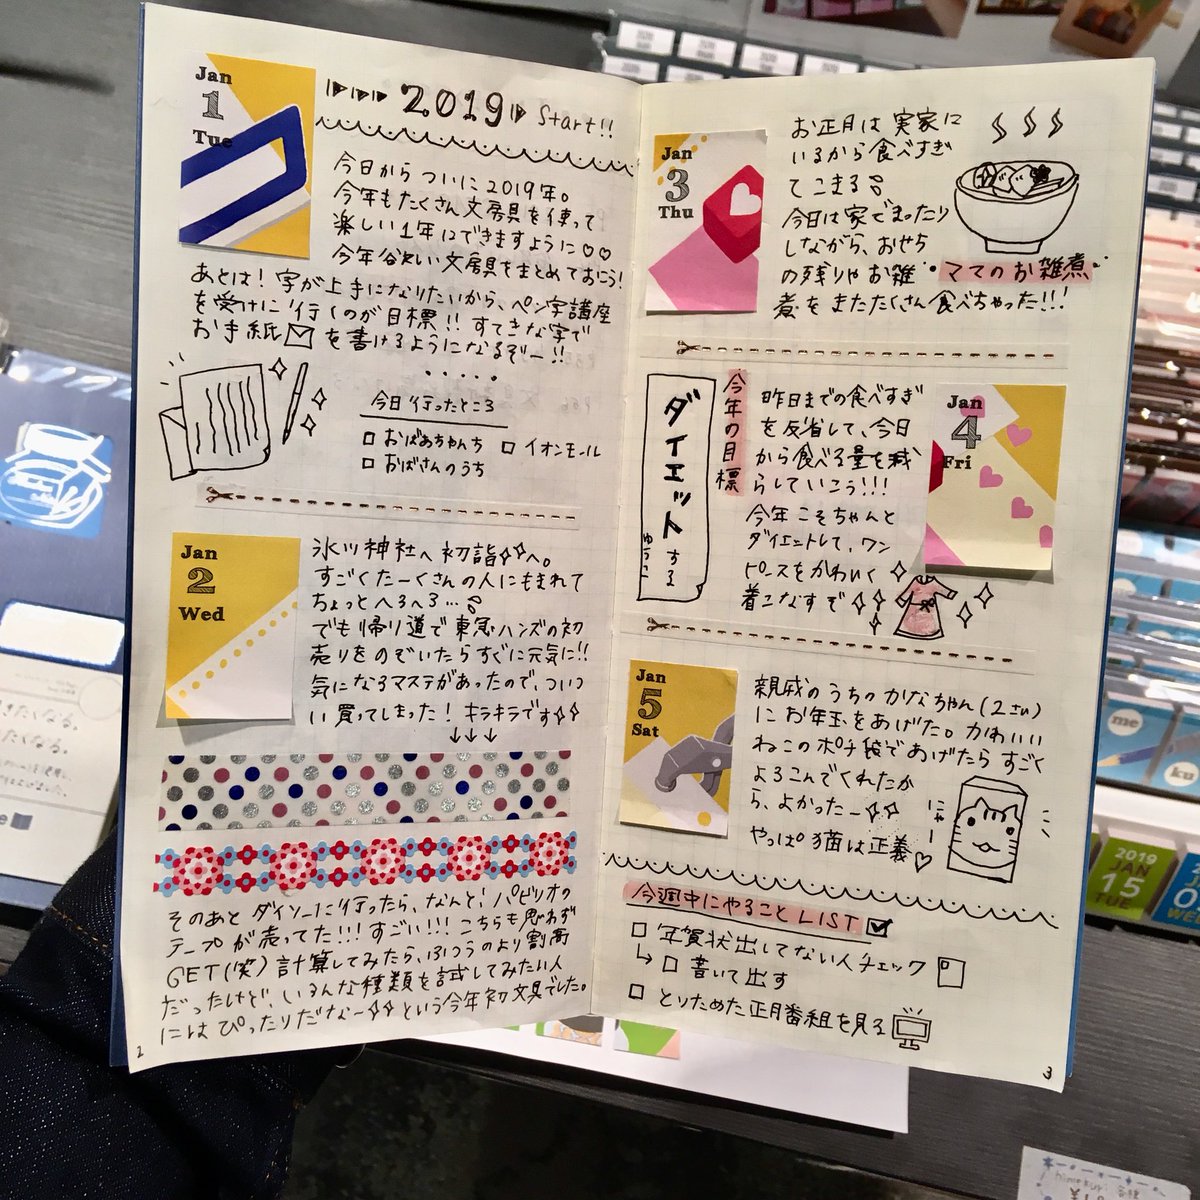 Jan
1
Tue
2019 Start!!
今日からついに2019年。
今年もたくさん文房具を使って
楽しい1年にできますように♡♡
今年欲しい文房具をまとめておこう!
あとは!字が上手になりたいから、ペン字講座
を受けに行くのが目標!!すてきな字で
お手紙を書けるようになるぞー!!
今日行ったところ
□ おばあちゃんち □ イオンモール
□ おばさんのうち
Jan
2
Wed
氷川神社へ初詣へ。
すごくたーくさんの人にもまれて
ちょっとへろへろ…
でも帰り道で東急ハンズの初
売りをのぞいたらすぐに元気に!!
気になるマステがあったので、ついつ
い買ってしまった! キラキラです
↓↓↓
そのあとダイソーに行ったら、なんと、パピリオの
テープが売ってた!!!すごい!!!こちらも思わず
GET(笑)計算してみたら、ふつうのより割高
だったけど、いろんな種類を試してみたい人
にはぴったりだなー という今年初文具でした。
2
Jan
3
Thu
お正月は実家に
いるから食べすぎ
てこまる
今日は家でまったり
しながら、おせち
の残りやお雑
煮をまたたくさん食べちゃった!!!
ママのお雑煮
今年の目標
ダイエットする
ゆうこ
Jan
4
Fri
昨日までの食べすぎ
を反省して、今日
から食べる量を減
らしていこう!!!
今年こそちゃんと
ダイエットして、ワン
ピースをかわいく
着こなすぞ
Jan
5
Sat
親戚のうちのかなちゃん(2さい)
にお年玉をあげた。かわいい
ねこのポチ袋であげたらすごく
よろこんでくれたか
ら、よかったー
やっぱ猫は正義♡
にゃー
今週中にやることLIST ☑
□ 年賀状出してない人チェック
↳ □ 書いて出す
□ とりためた正月番組を見る
3
me
ku
2019
JAN
15
TUE
himekuri